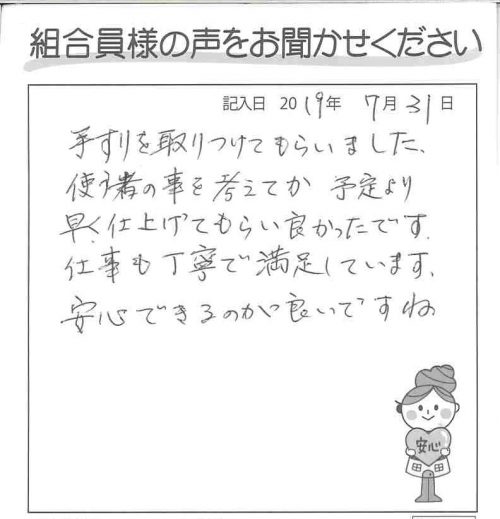 組合員様の声をお聞かせください
記入日 2019年 7月31日
手すりを取りつけてもらいました、
使う者の事を考えてか 予定より
早く、仕上げてもらい良かったです。
仕事も丁寧で満足しています、
安心できるのが良いですね。
安心